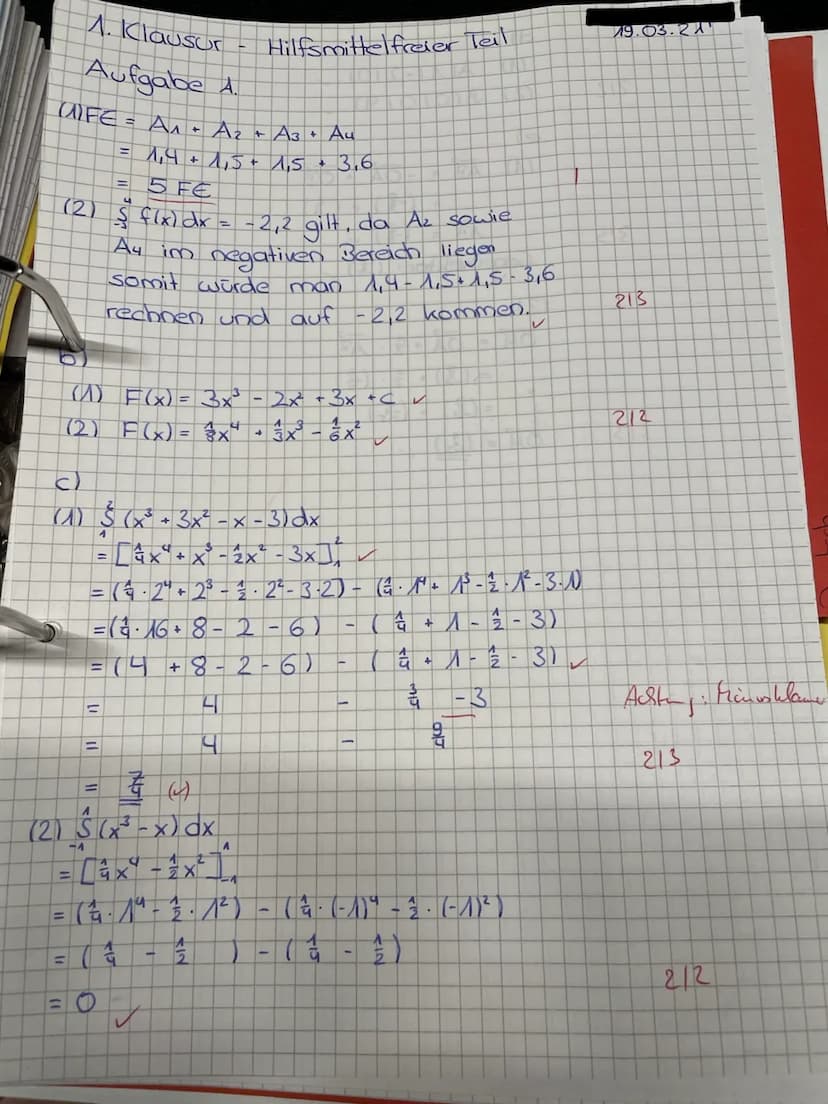 1. Klausur - Hilfsmittelfreier Teil
19.03.21
Aufgabe 1.
(1) FE = A₁ + A₂ + A₃ + A₄
= 1,4 + 1,5 + 1,5 + 3,6
= 5 FE
(2) ∫₋₃⁴ f(x) dx = -2,2 gilt, da A₂ sowie
A₄ im negativen Bereich liegen
somit würde man 1,4 - 1,5 + 1,5 - 3,6
rechnen und auf -2,2 kommen. ✓
2|3
b)
(1) F(x) = 3x³ - 2x² + 3x + c ✓
(2) F(x) = 1/8 x⁴ + 1/3 x³ - 1/6 x² ✓
2|2
c)
(1) ∫₁² (x³ + 3x² - x - 3) dx
= [1/4 x⁴ + x³ - 1/2 x² - 3x]₁² ✓
= (1/4 · 2⁴ + 2³ - 1/2 · 2² - 3·2) - (1/4 · 1⁴ + 1³ - 1/2 · 1² - 3·1)
= (1/4 · 16 + 8 - 2 - 6) - (1/4 + 1 - 1/2 - 3)
= (4 + 8 - 2 - 6) - (1/4 + 1 - 1/2 - 3) ✓
= 4 - 3/4 - 3
Achtung: Minusklamm
= 4 - 9/4
2|3
= 7/4 (✓)
(2) ∫₋₁¹ (x³ - x) dx
= [1/4 x⁴ - 1/2 x²]₋₁¹
= (1/4 · 1⁴ - 1/2 · 1²) - (1/4 · (-1)⁴ - 1/2 · (-1)²)
= (1/4 - 1/2) - (1/4 - 1/2)
2|2
= 0 ✓